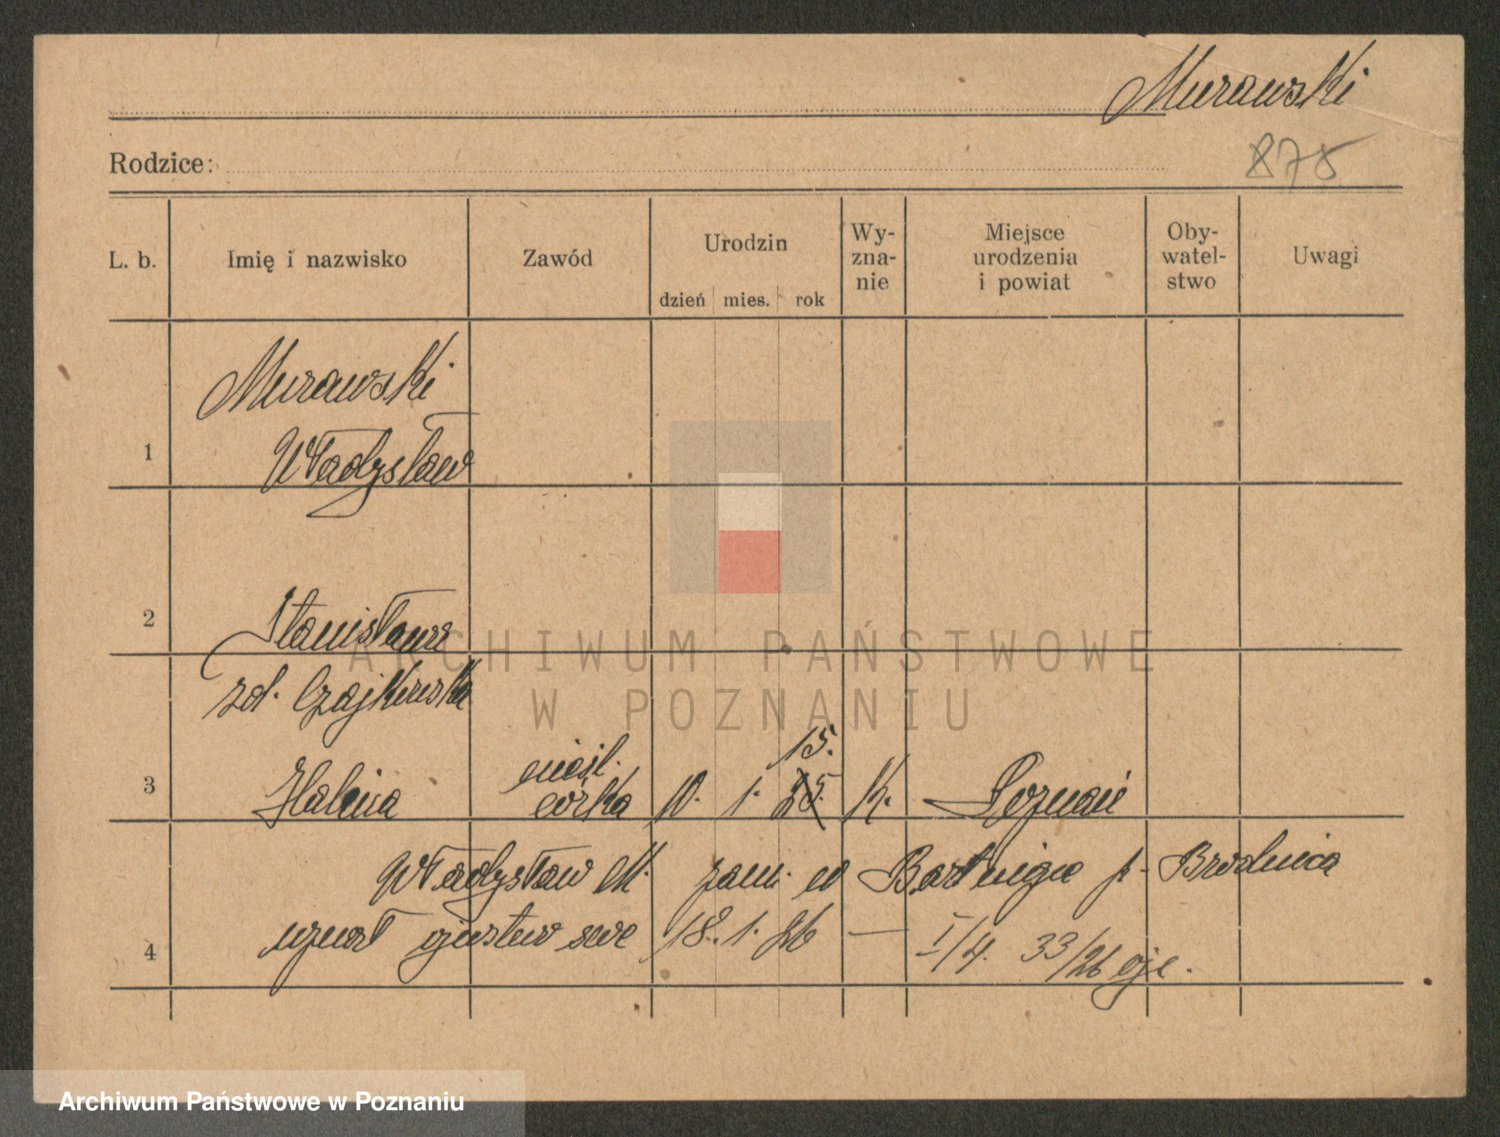 Murawski
Rodzice:
878
L. b. Imię i nazwisko Zawód Urodzin dzień mies. rok Wy-zna-nie Miejsce urodzenia i powiat Oby-watel-stwo Uwagi
Murawski
1 Władysław
2 Stanisława
zd. Czajkowska
15.
nieśl.
3 Halina córka 10. 1. 25. K. Poznań
Władysław M. zam. w p. Brodnica
uznał ojcostwo swe 18. 1. 26 —
4 I/4. 33/26 oje.
ARCHIWUM PAŃSTWOWE
W POZNANIU
Archiwum Państwowe w Poznaniu